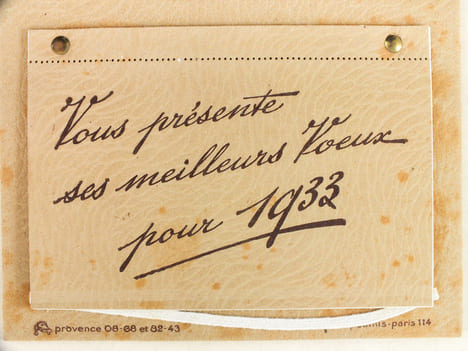 Vous présente
ses meilleurs Voeux
pour 1933
provence 08-68 et 82-43
-paris 114